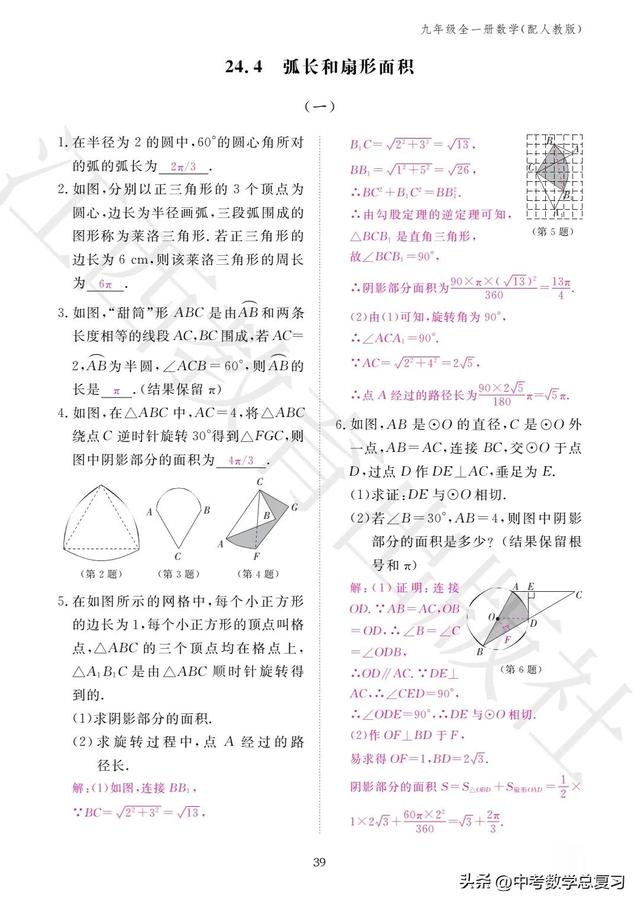 九年级全一册数学(配人教版)
24.4 弧长和扇形面积
(一)
1.在半径为2的圆中,60°的圆心角所对
的弧的弧长为 2π/3 .
2.如图,分别以正三角形的3个顶点为
圆心,边长为半径画弧,三段弧围成的
图形称为莱洛三角形.若正三角形的
边长为6 cm,则该莱洛三角形的周长
为 6π .
3.如图,“甜筒”形ABC是由AB和两条
长度相等的线段AC,BC围成,若AC=
2,AB为半圆,∠ACB=60°,则AB的
长是 π .(结果保留π)
4.如图,在△ABC中,AC=4,将△ABC
绕点C逆时针旋转30°得到△FGC,则
图中阴影部分的面积为 4π/3 .
A B C
C G B A F
(第2题) (第3题) (第4题)
5.在如图所示的网格中,每个小正方形
的边长为1,每个小正方形的顶点叫格
点,△ABC的三个顶点均在格点上,
△A₁B₁C是由△ABC顺时针旋转得
到的.
(1)求阴影部分的面积.
(2)求旋转过程中,点A经过的路
径长.
解:(1)如图,连接BB₁,
∵BC=√(2²+3²)=√13,
B₁C=√(2²+3²)=√13,
BB₁=√(1²+5²)=√26,
∴BC²+B₁C²=BB₁².
∴由勾股定理的逆定理可知,
△BCB₁是直角三角形,
故∠BCB₁=90°,
(第5题)
∴阴影部分面积为90×π×(√13)²/360=13π/4.
(2)由(1)可知,旋转角为90°,
∴∠ACA₁=90°.
∵AC=√(2²+4²)=2√5,
∴点A经过的路径长为90×2√5/180π=√5π.
6.如图,AB是⊙O的直径,C是⊙O外
一点,AB=AC,连接BC,交⊙O于点
D,过点D作DE⊥AC,垂足为E.
(1)求证:DE与⊙O相切.
(2)若∠B=30°,AB=4,则图中阴影
部分的面积是多少?(结果保留根
号和π)
解:(1)证明:连接
OD.∵AB=AC,OB
=OD,∴∠B=∠C
=∠ODB,
∴OD∥AC.∵DE⊥
AC,∴∠CED=90°,
A E C O D F B
(第6题)
∴∠ODE=90°,∴DE与⊙O相切.
(2)作OF⊥BD于F,
易求得OF=1,BD=2√3.
阴影部分的面积S=S△OBD+S扇形OAD=1/2×
1×2√3+60π×2²/360=√3+2π/3.
39
江西教育出版社
头条@中考数学总复习